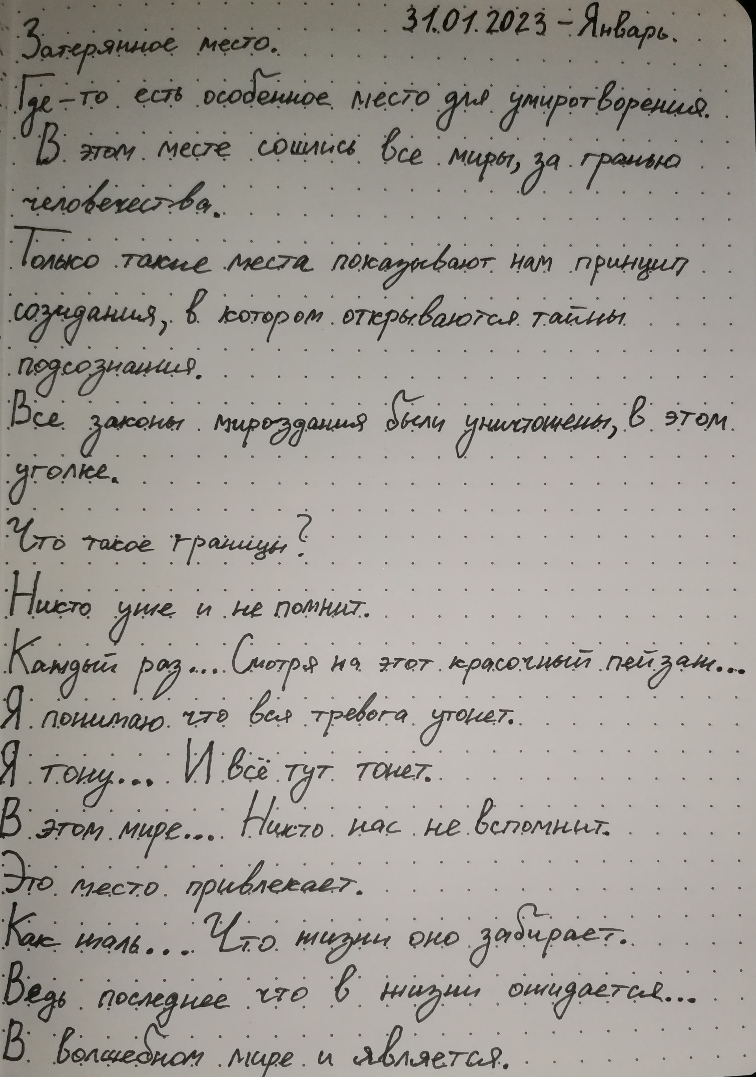 31.01.2023 – Январь.
Затерянное место.
Где-то есть особенное место для умиротворения.
В этом месте сошлись все миры, за гранью
человечества.
Только такие места показывают нам принцип
созидания, в котором открываются тайны
подсознания.
Все законы мироздания были уничтожены, в этом
уголке.
Что такое границы?
Никто уже и не помнит.
Каждый раз... Смотря на этот красочный пейзаж...
Я понимаю что вся тревога утонет.
Я тону... И всё тут тонет.
В этом мире... Никто нас не вспомнит.
Это место привлекает.
Как жаль... Что жизни оно забирает.
Ведь последнее что в жизни ожидается...
В волшебном мире и является.